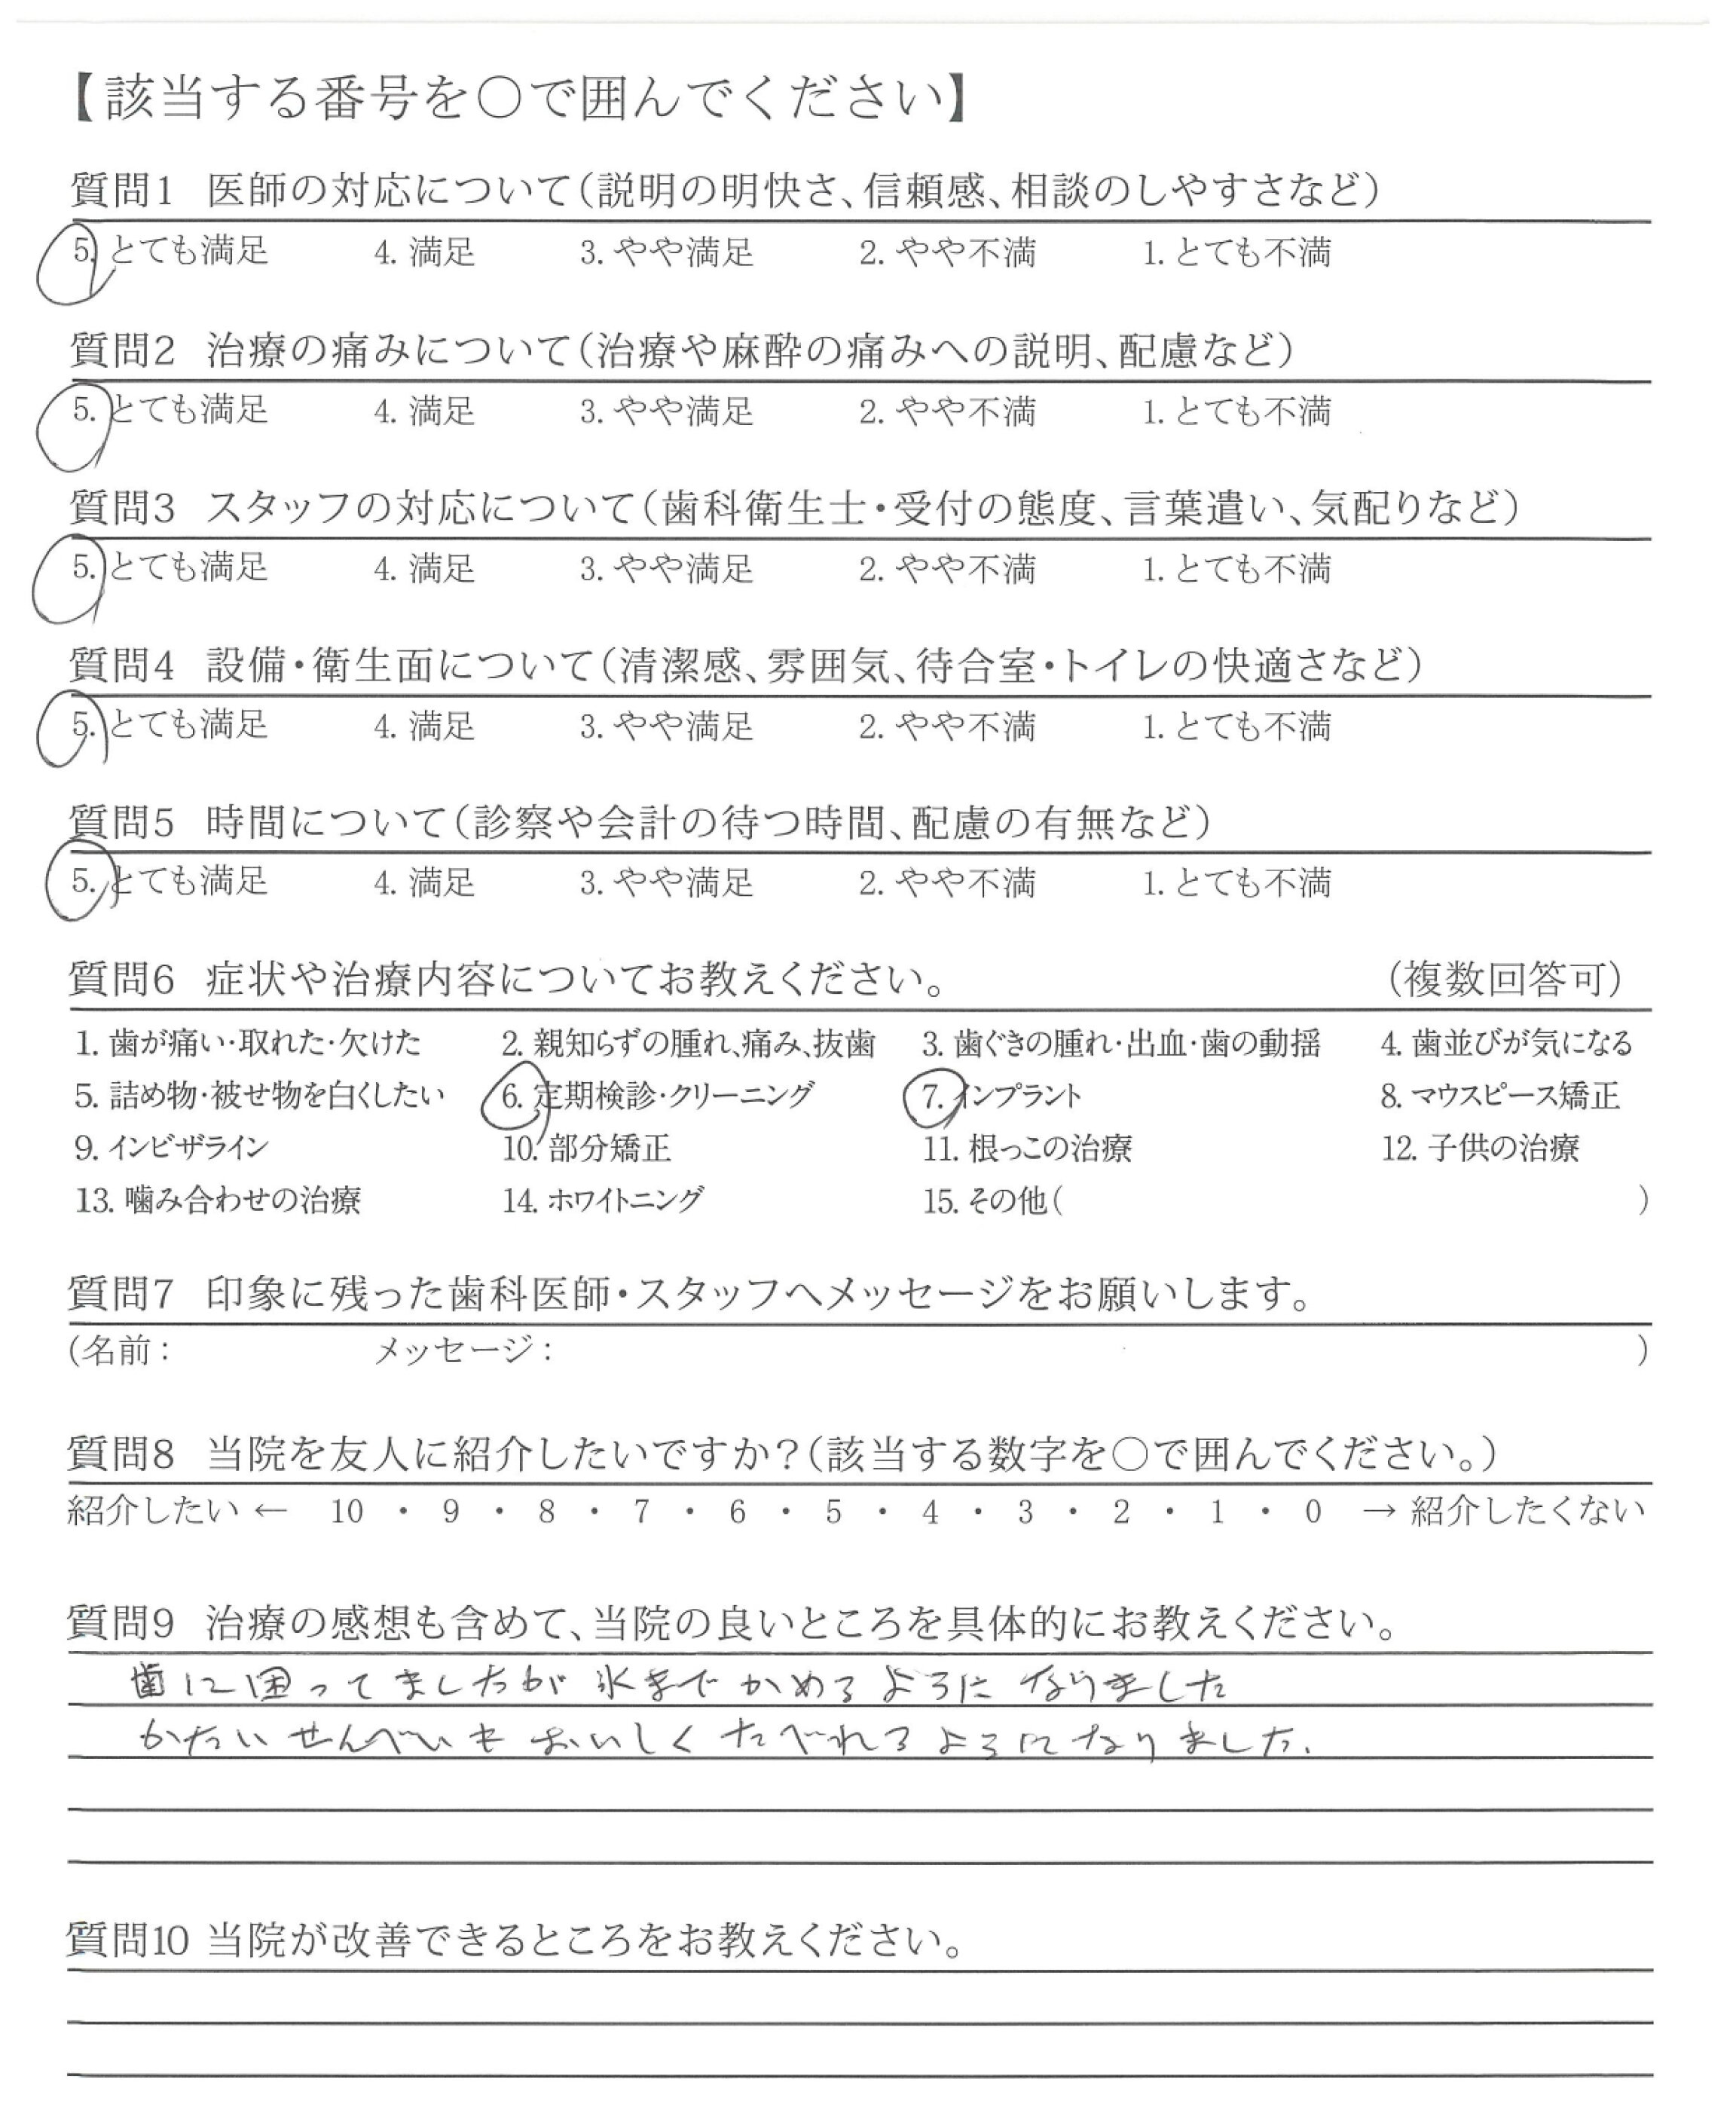 【該当する番号を○で囲んでください】
質問1 医師の対応について(説明の明快さ、信頼感、相談のしやすさなど)
5. とても満足 4. 満足 3. やや満足 2. やや不満 1. とても不満
質問2 治療の痛みについて(治療や麻酔の痛みへの説明、配慮など)
5. とても満足 4. 満足 3. やや満足 2. やや不満 1. とても不満
質問3 スタッフの対応について(歯科衛生士・受付の態度、言葉遣い、気配りなど)
5. とても満足 4. 満足 3. やや満足 2. やや不満 1. とても不満
質問4 設備・衛生面について(清潔感、雰囲気、待合室・トイレの快適さなど)
5. とても満足 4. 満足 3. やや満足 2. やや不満 1. とても不満
質問5 時間について(診察や会計の待つ時間、配慮の有無など)
5. とても満足 4. 満足 3. やや満足 2. やや不満 1. とても不満
質問6 症状や治療内容についてお教えください。 (複数回答可)
1. 歯が痛い・取れた・欠けた 2. 親知らずの腫れ、痛み、抜歯 3. 歯ぐきの腫れ・出血・歯の動揺 4. 歯並びが気になる
5. 詰め物・被せ物を白くしたい 6. 定期検診・クリーニング 7. インプラント 8. マウスピース矯正
9. インビザライン 10. 部分矯正 11. 根っこの治療 12. 子供の治療
13. 噛み合わせの治療 14. ホワイトニング 15. その他( )
質問7 印象に残った歯科医師・スタッフへメッセージをお願いします。
(名前: メッセージ: )
質問8 当院を友人に紹介したいですか?(該当する数字を○で囲んでください。)
紹介したい ← 10 ・ 9 ・ 8 ・ 7 ・ 6 ・ 5 ・ 4 ・ 3 ・ 2 ・ 1 ・ 0 → 紹介したくない
質問9 治療の感想も含めて、当院の良いところを具体的にお教えください。
歯に困ってましたが氷までかめるようになりました
かたいせんべいもおいしくたべれるようになりました.
質問10 当院が改善できるところをお教えください。